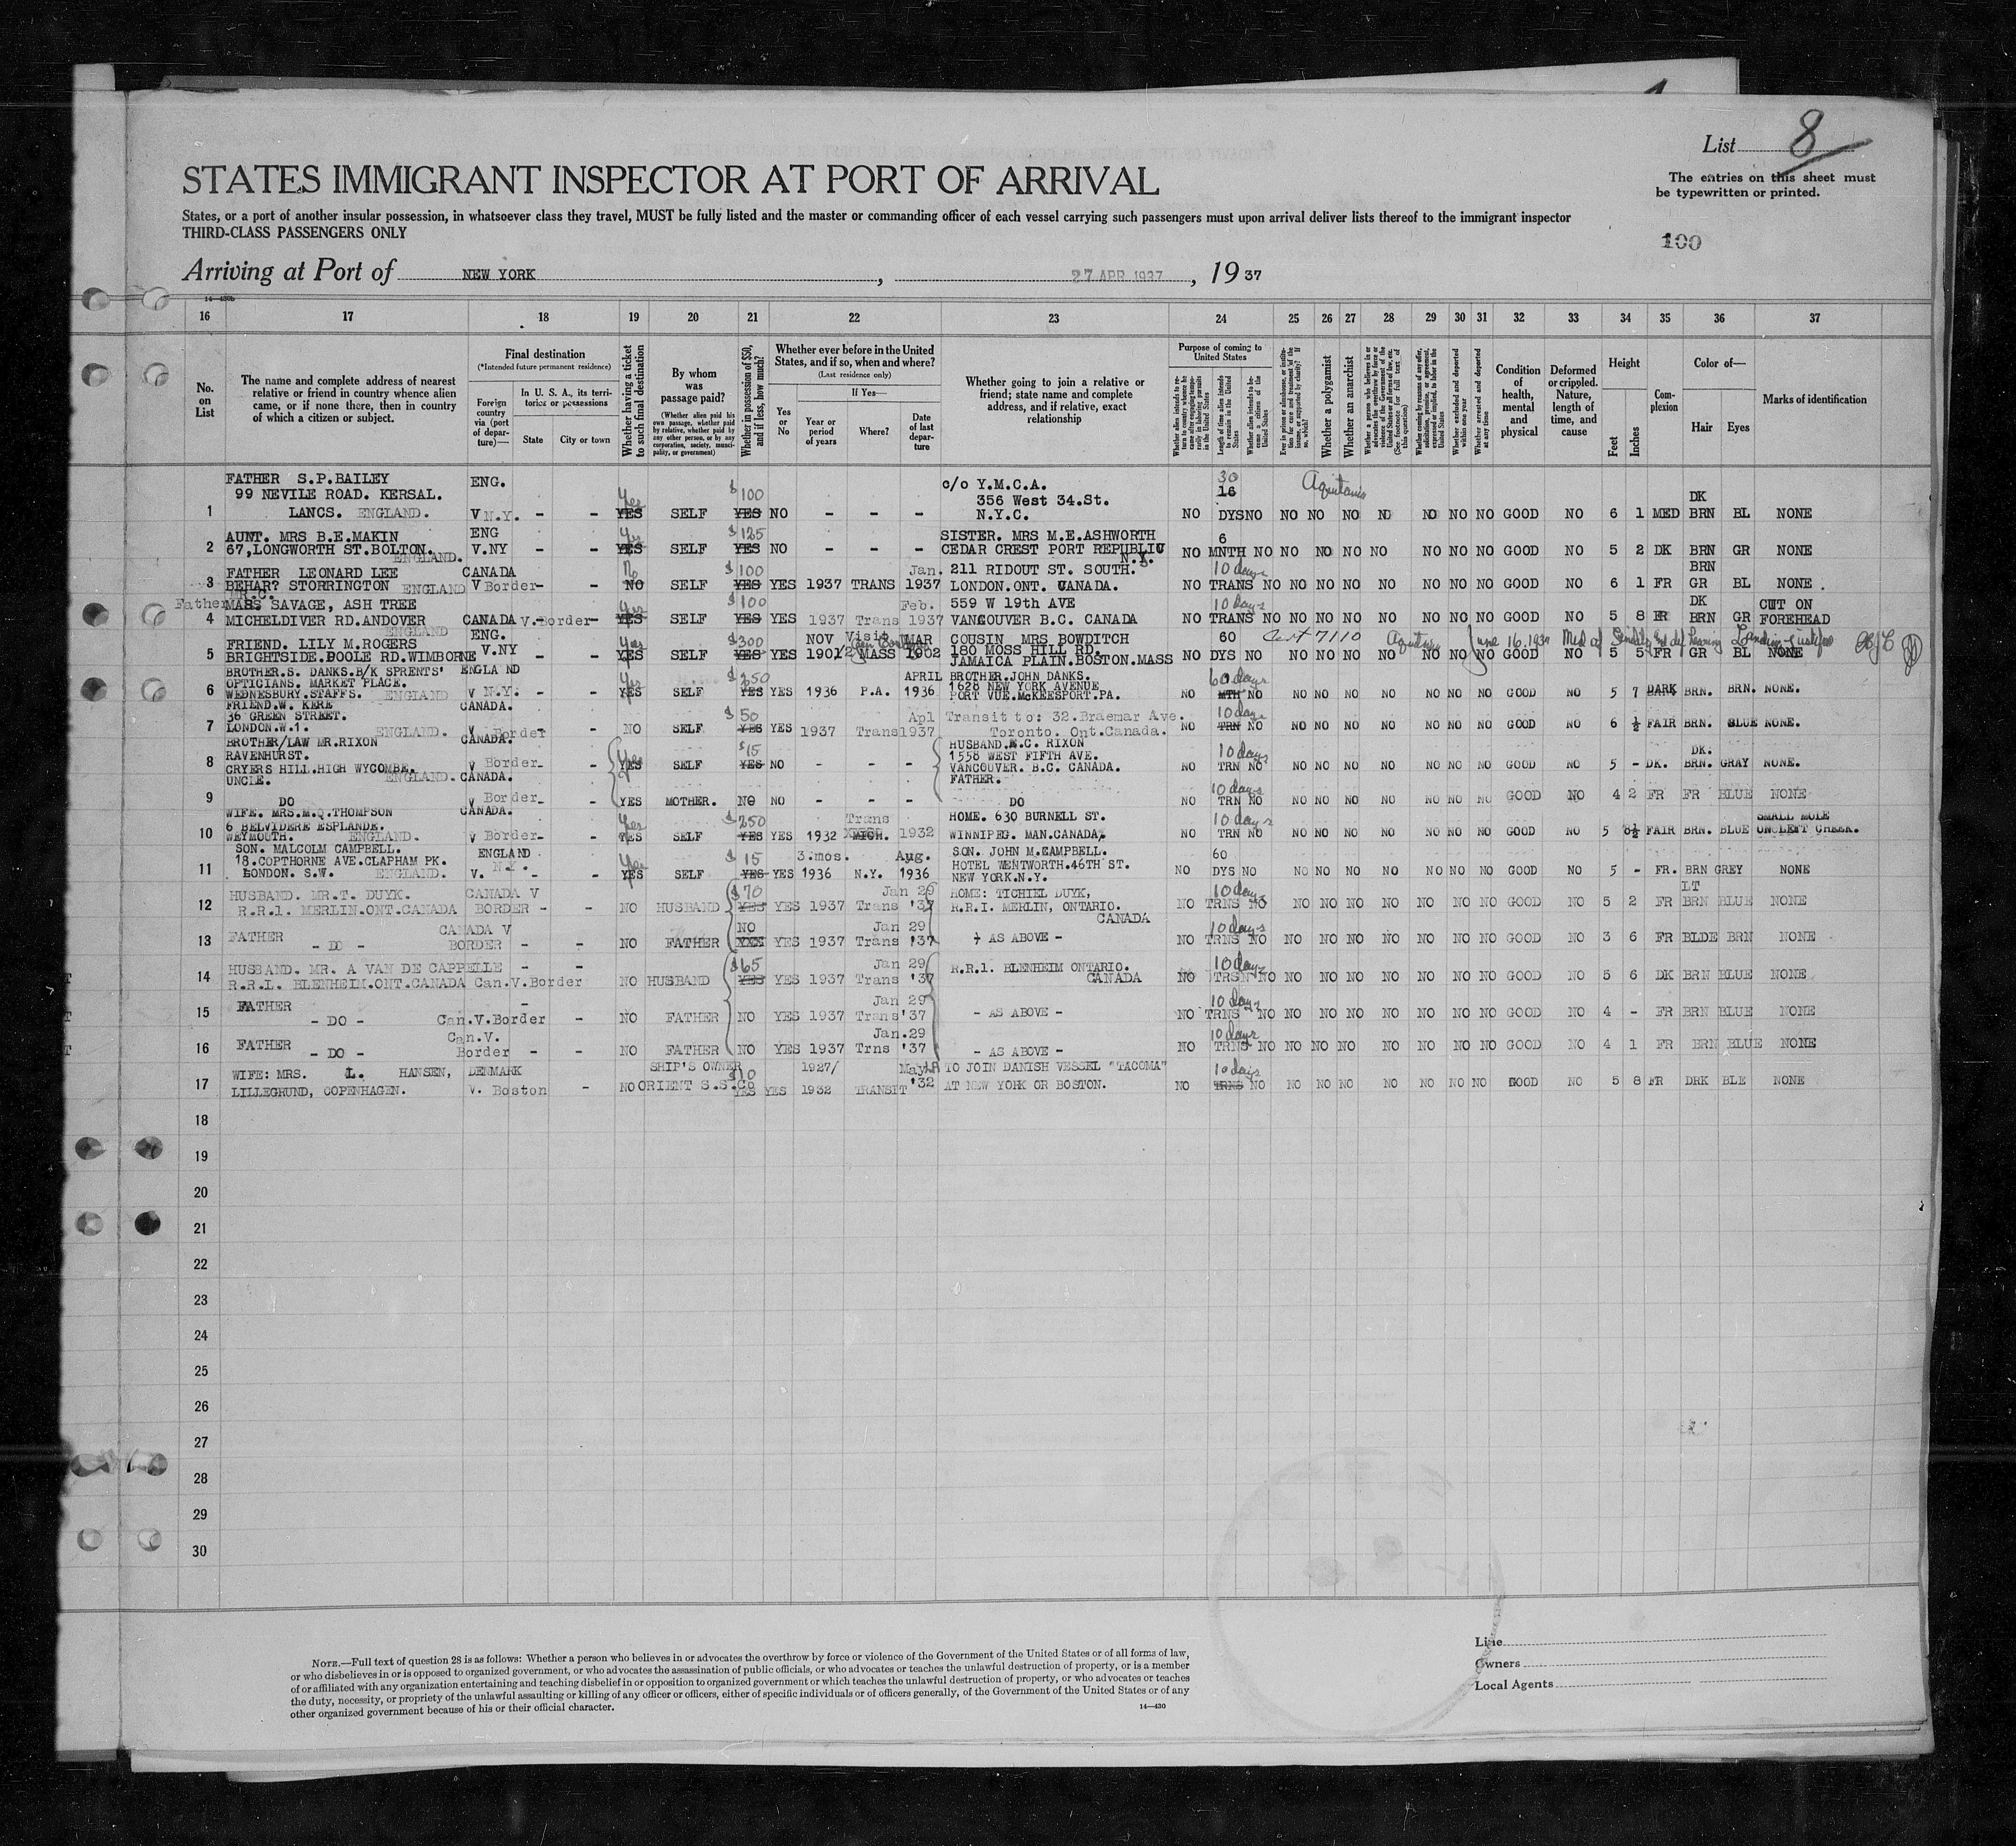 List 8
STATES IMMIGRANT INSPECTOR AT PORT OF ARRIVAL
The entries on this sheet must
be typewritten or printed.
States, or a port of another insular possession, in whatsoever class they travel, MUST be fully listed and the master or commanding officer of each vessel carrying such passengers must upon arrival deliver lists thereof to the immigrant inspector
THIRD-CLASS PASSENGERS ONLY
100
Arriving at Port of NEW YORK, 27 APR 1937, 19 37
14—430b
16 17 18 19 20 21 22 23 24 25 26 27 28 29 30 31 32 33 34 35 36 37
No. on List
The name and complete address of nearest relative or friend in country whence alien came, or if none there, then in country of which a citizen or subject.
Final destination
(*Intended future permanent residence)
Foreign country via (port of departure)—
In U. S. A., its territories or possessions
State
City or town
Whether having a ticket to such final destination
By whom was passage paid?
(Whether alien paid his own passage, whether paid by relative, whether paid by any other person, or by any corporation, society, municipality, or government)
Whether in possession of $50, and if less, how much?
Whether ever before in the United States, and if so, when and where?
(Last residence only)
Yes or No
If Yes—
Year or period of years
Where?
Date of last departure
Whether going to join a relative or friend; state name and complete address, and if relative, exact relationship
Purpose of coming to United States
Length of time alien intends to remain in the United States
Whether alien intends to become a citizen of the United States
Whether a polygamist
Whether an anarchist
Whether excluded and deported within one year
Whether arrested and deported at any time
Condition of health, mental and physical
Deformed or crippled. Nature, length of time, and cause
Height
Feet
Inches
Complexion
Color of—
Hair
Eyes
Marks of identification
1 FATHER S.P.BAILEY 99 NEVILE ROAD. KERSAL. LANCS. ENGLAND. ENG. V N.Y. - - Yes YES SELF $100 YES NO - - - c/o Y.M.C.A. 356 West 34.St. N.Y.C. NO 30 16 DYS NO NO NO NO NO NO NO NO GOOD NO 6 1 MED DK BRN BL NONE
Aquitania
2 AUNT. MRS B.E.MAKIN 67,LONGWORTH ST.BOLTON. ENGLAND. ENG V.NY - - Yes YES SELF $125 YES NO - - - SISTER. MRS M.E.ASHWORTH CEDAR CREST PORT REPUBLIC N.Y. NO 6 MNTH NO NO NO NO NO NO NO NO GOOD NO 5 2 DK BRN GR NONE
3 FATHER LEONARD LEE BEHAR? STORRINGTON ENGLAND CANADA V Border - - No NO SELF $100 YES YES 1937 TRANS Jan. 1937 211 RIDOUT ST. SOUTH. LONDON.ONT. CANADA. NO 10 days TRANS NO NO NO NO NO NO NO NO GOOD NO 6 1 FR BRN GR BL NONE.
4 Father SAVAGE, ASH TREE MICHELDIVER RD.ANDOVER ENGLAND CANADA V.Border - Yes YES SELF $100 YES YES 1937 Trans Feb. 1937 559 W 19th AVE VANCOUVER B.C. CANADA NO 10 days TRANS NO NO NO NO NO NO NO NO GOOD NO 5 8 DK BRN GR CUT ON FOREHEAD
5 FRIEND. LILY M.ROGERS BRIGHTSIDE.POOLE RD.WIMBORNE ENG. V.NY - Yes YES SELF $300 YES YES NOV 1901/2 Visit MASS MAR 1902 COUSIN MRS BOWDITCH 180 MOSS HILL RD. JAMAICA PLAIN.BOSTON.MASS NO 60 DYS NO NO NO NO NO NO NO NO GOOD NO 5 5 FR GR BL NONE
Cert 7110 Aquitania June 16, 1937
6 BROTHER.S. DANKS.B/K SPRENTS' OPTICIANS. MARKET PLACE. WEDNESBURY.STAFFS. ENGLAND ENGLAND V N.Y. - - Yes YES SELF $250 YES YES 1936 P.A. APRIL 1936 BROTHER.JOHN DANKS. 1628 NEW YORK AVENUE PORT VUE.McKEESPORT.PA. NO 60 days MTH NO NO NO NO NO NO NO NO GOOD NO 5 7 DARK BRN. BRN. NONE.
7 FRIEND.W. KERE 36 GREEN STREET. LONDON.W.1. ENGLAND. CANADA. V Border - NO SELF $50 YES YES 1937 Trans Apl 1937 Transit to: 32.Braemar Ave. Toronto. Ont.Canada. NO 10 days TRN NO NO NO NO NO NO NO NO GOOD NO 6 ½ FAIR BRN. BLUE NONE.
8 BROTHER/LAW MR.RIXON RAVENHURST. CRYERS HILL.HIGH WYCOMBE. ENGLAND. CANADA. V Border - - Yes YES SELF $15 YES NO - - - HUSBAND.N.C. RIXON 1558 WEST FIFTH AVE. VANCOUVER. B.C. CANADA. NO 10 days TRN NO NO NO NO NO NO NO NO GOOD NO 5 - DK. DK. BRN. GRAY NONE.
9 UNCLE. DO CANADA. V Border - - YES MOTHER. NO NO - - - FATHER. DO NO 10 days TRN NO NO NO NO NO NO NO NO GOOD NO 4 2 FR FR BLUE NONE
10 WIFE. MRS.M.Q.THOMPSON 6 BELVIDERE ESPLANDE. WEYMOUTH. ENGLAND. CANADA. V Border - - Yes YES SELF $250 YES YES 1932 Trans MICH. 1932 HOME. 630 BURNELL ST. WINNIPEG. MAN.CANADA. NO 10 days TRN NO NO NO NO NO NO NO NO GOOD NO 5 8½ FAIR BRN. BLUE SMALL MOLE ON LEFT CHEEK.
11 SON. MALCOLM CAMPBELL. 18.COPTHORNE AVE.CLAPHAM PK. LONDON. S.W. ENGLAND. ENGLAND V. N.Y. - - Yes YES SELF $15 YES YES 3.mos. 1936 N.Y. Aug. 1936 SON. JOHN M.CAMPBELL. HOTEL WENTWORTH.46TH ST. NEW YORK.N.Y. NO 60 DYS NO NO NO NO NO NO NO NO GOOD NO 5 - FR. BRN GREY NONE
12 HUSBAND. MR.T. DUYK. R.R.1. MERLIN.ONT.CANADA CANADA V BORDER - - NO HUSBAND $70 YES YES 1937 Trans Jan 29 '37 HOME: TICHIEL DUYK, R.R.I. MERLIN, ONTARIO. CANADA NO 10 days TRNS NO NO NO NO NO NO NO NO GOOD NO 5 2 FR LT BRN BLUE NONE
13 FATHER - DO - CANADA V BORDER - - NO FATHER NO YES 1937 Trans Jan 29 '37 AS ABOVE - NO 10 days TRNS NO NO NO NO NO NO NO NO GOOD NO 3 6 FR BLDE BRN NONE
14 HUSBAND. MR. A VAN DE CAPPELLE R.R.1. BLENHEIM.ONT.CANADA Can.V.Border - - NO HUSBAND $65 YES YES 1937 Trans Jan 29 '37 R.R.1. BLENHEIM ONTARIO. CANADA NO 10 days TRSN NO NO NO NO NO NO NO NO GOOD NO 5 6 DK BRN BLUE NONE
15 FATHER - DO - Can.V.Border - - NO FATHER NO YES 1937 Trans Jan 29 '37 - AS ABOVE - NO 10 days TRNS NO NO NO NO NO NO NO NO GOOD NO 4 - FR BRN BLUE NONE
16 FATHER - DO - Can.V. Border - - NO FATHER NO YES 1937 Trns Jan.29 '37 - AS ABOVE - NO 10 days TRNS NO NO NO NO NO NO NO NO GOOD NO 4 1 FR BRN BLUE NONE
17 WIFE: MRS. L. HANSEN, LILLEGRUND, COPENHAGEN. DENMARK V. Boston - NO SHIP'S OWNER ORIENT S.S.Co $10 YES YES 1927/ 1932 TRANSIT May '32 TO JOIN DANISH VESSEL "TACOMA" AT NEW YORK OR BOSTON. NO 10 days TRNS NO NO NO NO NO NO NO NO GOOD NO 5 8 FR DRK BLE NONE
18
19
20
21
22
23
24
25
26
27
28
29
30
NOTE.—Full text of question 28 is as follows: Whether a person who believes in or advocates the overthrow by force or violence of the Government of the United States or of all forms of law,
or who disbelieves in or is opposed to organized government, or who advocates the assassination of public officials, or who advocates or teaches the unlawful destruction of property, or is a member
of or affiliated with any organization entertaining and teaching disbelief in or opposition to organized government or which teaches the unlawful destruction of property, or who advocates or teaches
the duty, necessity, or propriety of the unlawful assaulting or killing of any officer or officers, either of specific individuals or of officers generally, of the Government of the United States or of any
other organized government because of his or their official character.
14—430
Line
Owners
Local Agents